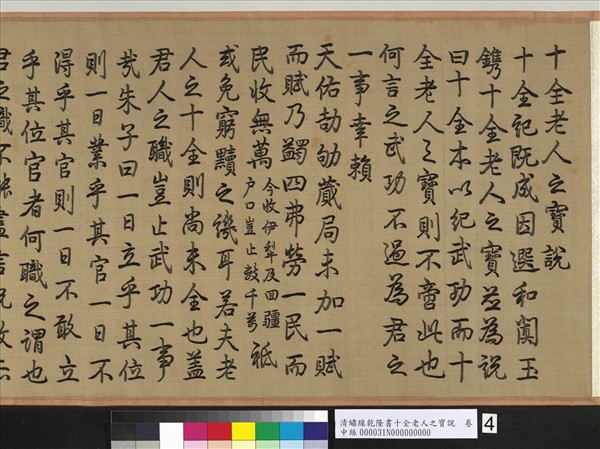 十全老人之寶說
十全記既成因選和闐玉
鐫十全老人之寶並為說
曰十全本以紀武功而十
全老人之寶則不啻此也
何言之武功不過為君之
一事幸賴
天佑劼劬蕆局未加一賦
而賦乃蠲四弗勞一民而
民收無萬
今收伊犁及回疆
戶口豈止數千萬
祗
或免窮黷之譏耳若夫老
人之十全則尚未全也蓋
君人之職豈止武功一事
哉朱子曰一日立乎其位
則一日業乎其官一日不
得乎其官則一日不敢立
乎其位官者何職之謂也
君之職不
盡言況
清繡線乾隆書十全老人之寶說 卷
中絲.000031N000000000
4